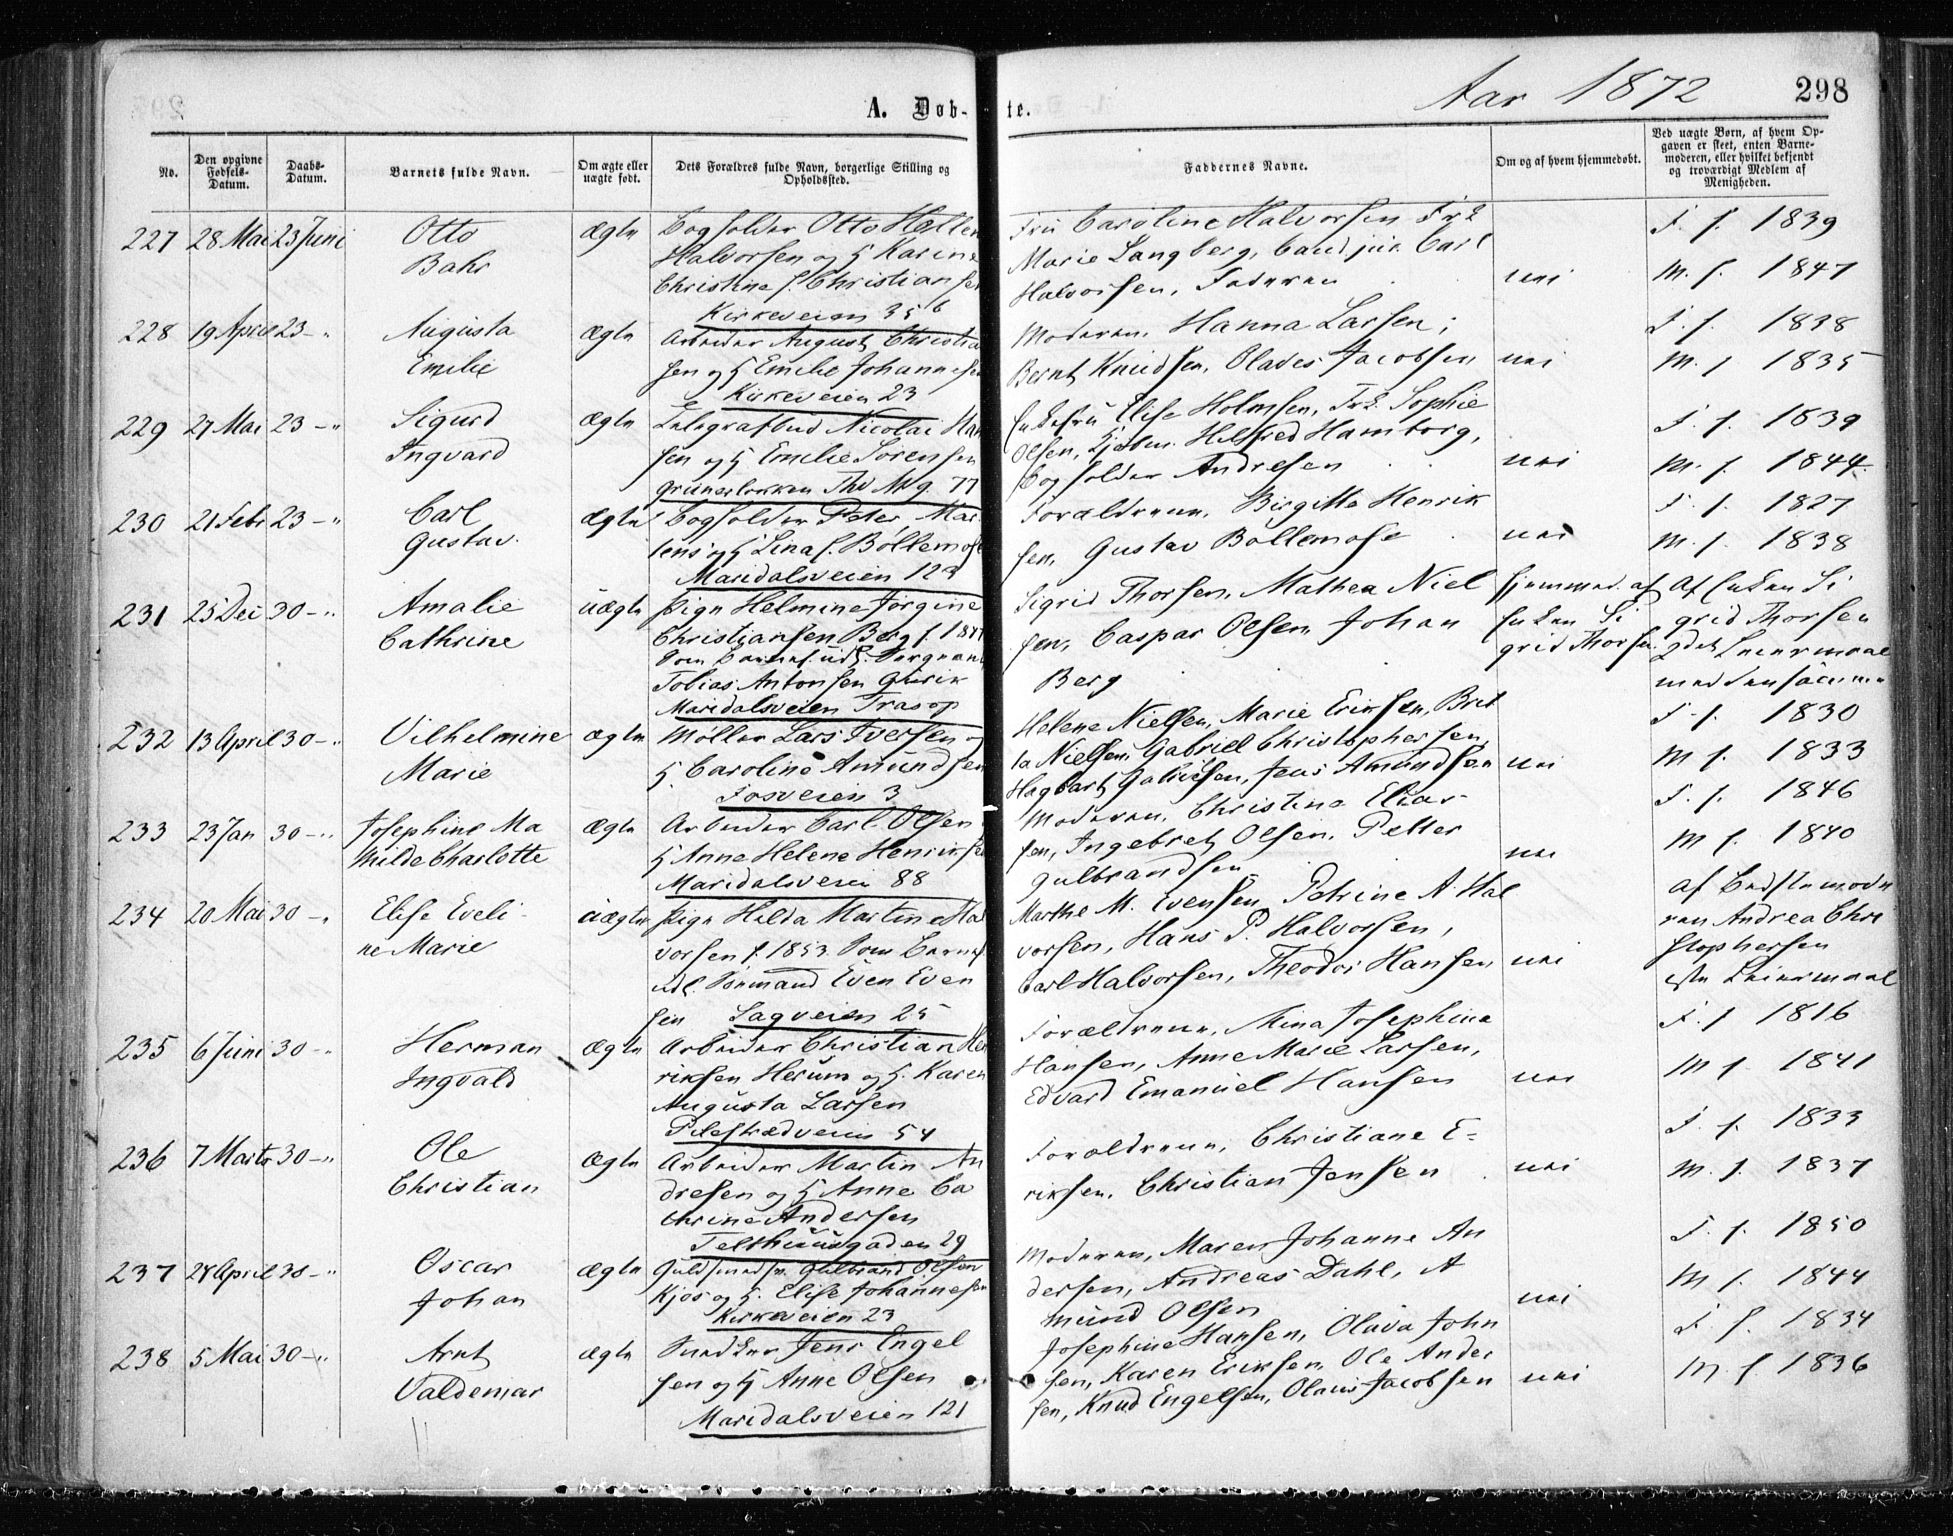 Aar 1872
298
A. Døb-
te.
No.
Den opgivne Fødsels-Datum.
Daabs-Datum.
Barnets fulde Navn.
Om ægte eller uægte født.
Dets Forældres fulde Navn, borgerlige Stilling og Opholdssted.
Faddernes Navne.
Om og af hvem hjemmedøbt.
Ved uægte Børn, af hvem Opgaven er skeet, enten Barnemoderen, eller hvilket bekjendt og troværdigt Medlem af Menigheden.
227 28 Mai 23 Juni Otto Bahr ægte
Bogholder Otto Hellen
Halvorsen og H Karine
Christine f. Christiansen
Kirkeveien 35 b
Fru Caroline Halvorsen Frk
Marie Langberg, Cand jur. Carl
Halvorsen, Faderen
nei
F. f. 1839
M. f. 1847
228 19 April 23 - " Augusta Emilie ægte
Arbeider August Christian
sen og H Emilie Johannesen
Kirkeveien 23
Moderen, Hanna Larsen;
Bernt Knudsen, Olaves Jacobsen
nei
F. f. 1838
M. f 1835
229 27 Mai 23 - " Sigurd Ingvard ægte
Telegrafbud Nicolai Han
sen og H Emilie Sørensen
Grünerløkken Thv Mg. 77
Enkefru Elise Holmsen, Frk. Sophie
Olsen, Hjalm. Helfred Hamborg,
Bogholder Andresen
nei
F. f. 1839
M. f. 1844.
230 21 Febr 23 - " Carl Gustav. ægte
Bogholder Peter Mar
tens og H Lina f. Böllemose
Maridalsveien 123
Forældrene, Birgitte Henrik
sen, Gustav Böllemose
nei
F. f. 1827
M. f. 1838
231 25 Dec 30 - " Amalie Cathrine uægte
Pign Helmine Jørgine
Christiansen Berg f. 1847
Som Barnef. udl. Sergeant
Tobias Antonsen Gjerik
Maridalsveien Trasop
Sigrid Thorsen, Mathea Niel
sen, Caspar Olsen, Johan
Berg
Hjemmed. af
Enken Si
grid Thorsen
Af Enken Si
grid Thorsen
2det Leiermaal
med samme
232 13 April 30 - " Vilhelmine Marie ægte
Møller Lars Iversen og
H. Caroline Amundsen
Fosveien 3
Helene Nielsen, Marie Eriksen, Brit
ta Nielsen, Gabriel Christophersen,
Hagbart Gabrielsen, Jens Amundsen
nei
F. f. 1830
M f. 1833
233 23 Jan 30 - " Josephine Ma
thilde Charlotte ægte
Arbeider Carl Olsen,
H Anne Helene Henriksen
Maridalsveien 88
Moderen, Christine Elias-
sen, Ingebret Olsen, Petter
Gulbrandsen
nei
F. f. 1846
M f. 1840
234 20 Mai 30 - " Elise Eveli-
ne Marie uægte
Pign Hilda Martine Hal
vorsen f. 1853. Som Barnef.
udl. Sømand Even Even
sen Sagveien 25
Marthe M. Evensen, Petrine A. Hal
vorsen, Hans P. Halvorsen,
Carl Halvorsen, Theodor Hansen
nei
Af Bedstemode
ren Andrea Chri
stophersen
1ste Leiermaal
235 6 Juni 30 - " Herman Ingvald ægte
Arbeider Christian Hen
riksen Herum og H. Karen
Augusta Larsen
Pilestrædveien 54
Forældrene, Mina Josephine
Hansen, Anne Marie Larsen,
Edvard Emanuel Hansen
nei
F. f 1816
M f 1841
236 7 Marts 30 - " Ole Christian ægte
Arbeider Martin An
dresen og H Anne Ca
thrine Andersen
Telthuusgaden 29
Forældrene, Christiane E=
riksen, Christian Jensen
nei
F. f. 1833
M. f. 1837
237 24 April 30 - " Oscar Johan ægte
Guldsmedsv. Gulbrand Olsen
Kjos og H. Elise Johannesen
Kirkeveien 23
Moderen, Maren Johanne An
dersen, Andreas Dahl, A
mund Olsen
nei
F. f. 1850
M f. 1844
238 5 Mai 30 - " Arnt Valdemar ægte
Snedker Jens Engel
sen og H Anne Olsen
Maridalsveien 121
Josephine Hansen, Olava John
sen, Karen Eriksen, Ole Ander
sen, Knud Engelsen, Olaus Jacobsen
nei
F. f. 1834
M f 1836